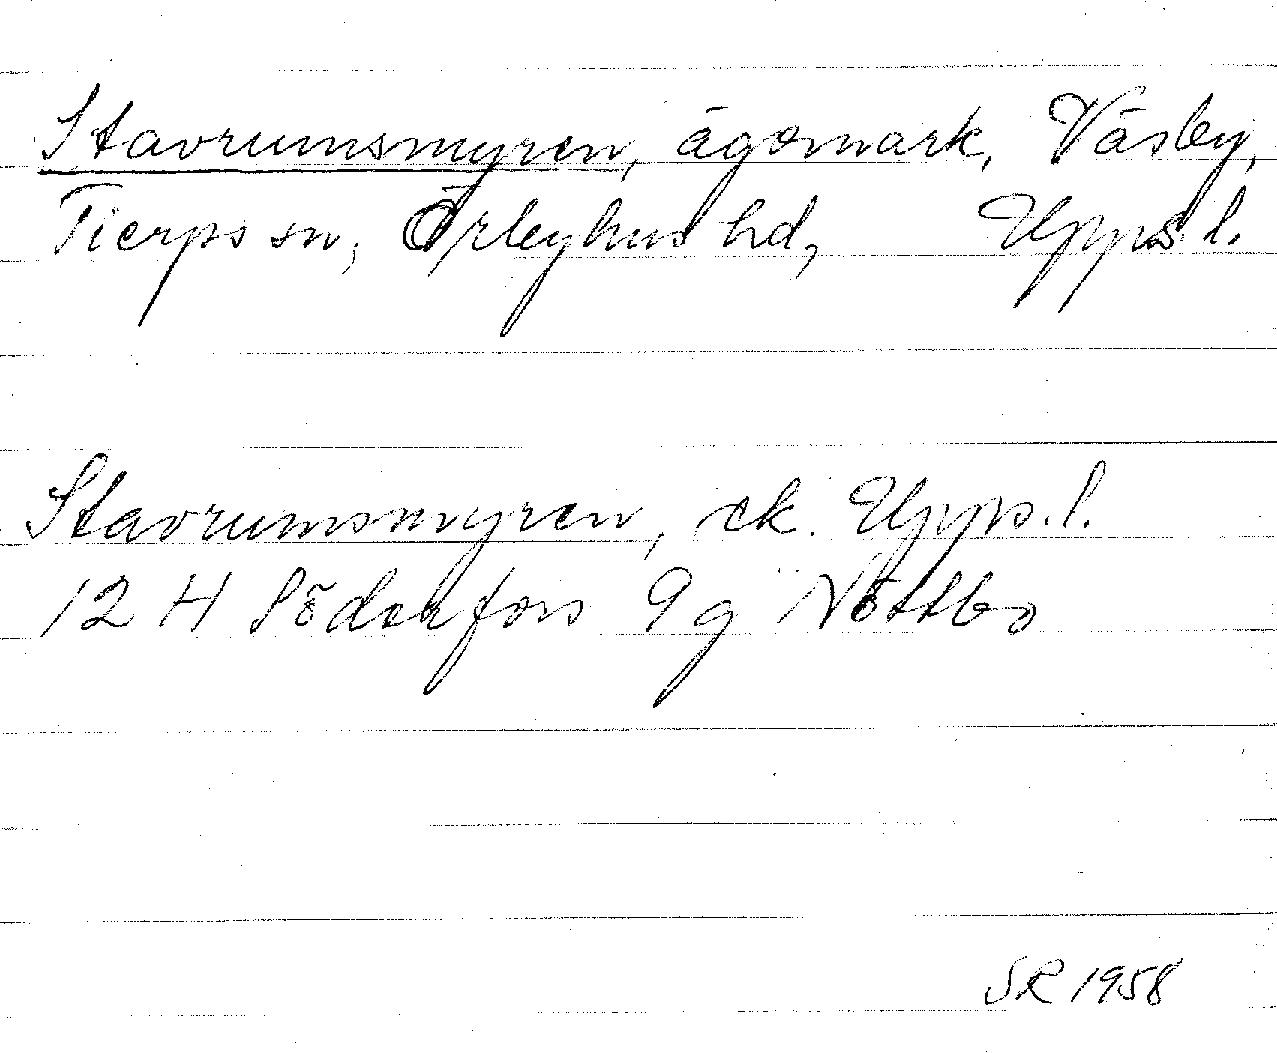 Stavrumsmyren, ägomark, Väsby,
Tierps sn, Örbyhus hd, Upps. l.
Stavrumsmyren, ek. Upps. l.
12 H Söderfors 9 g Nöttbo
SR 1958